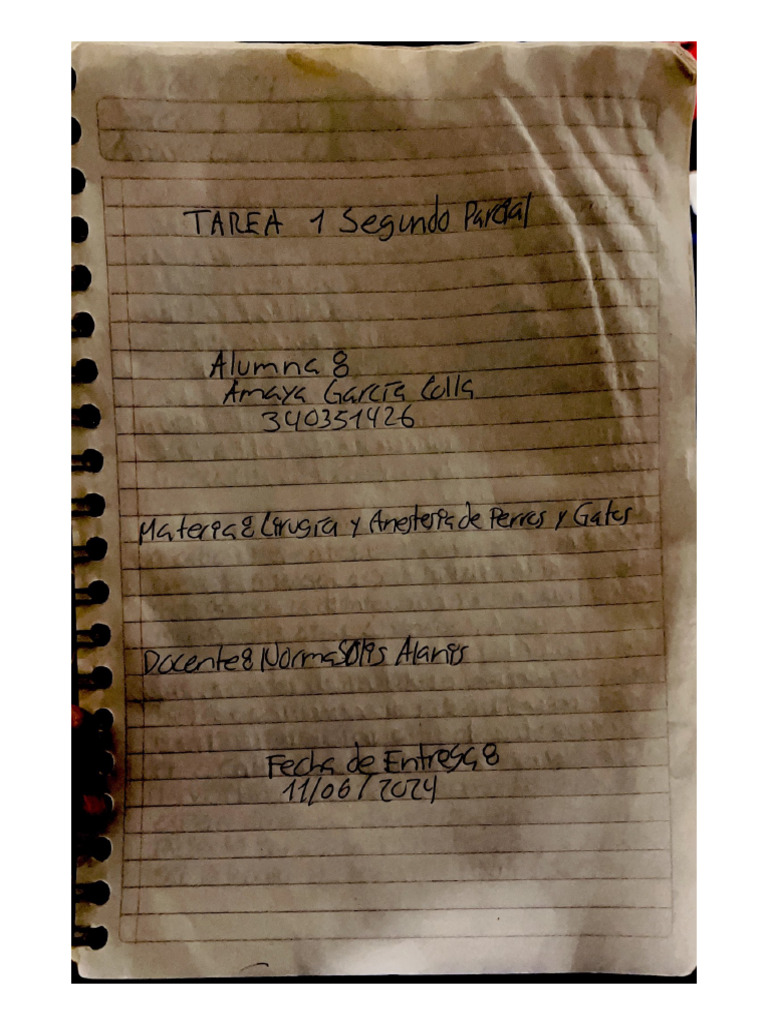 TAREA 1 Segundo Parcial
Alumna:
Amaya García Colla
340351426
Materia: Cirugía y Anestesia de Perros y Gatos
Docente: Norma Solis Alanis
Fecha de Entrega:
11/06/2024